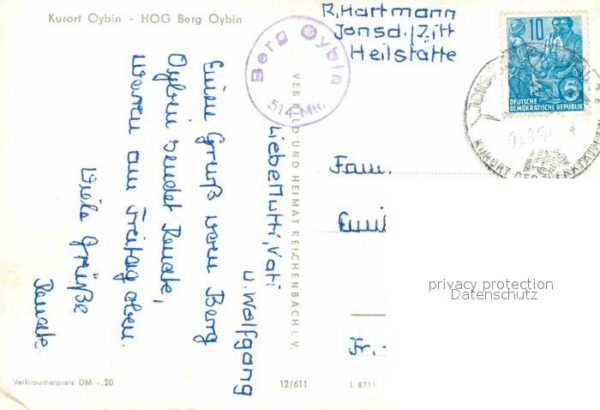 Kurort Oybin - HOG Berg Oybin
Liebe Mutti, Vati
u. Wolfgang
Einen Gruß vom Berg
Oybin sendet Renate,
waren am Freitag oben.
Viele Grüße
Renate
Verbraucherpreis DM -.20
VEB BILD UND HEIMAT REICHENBACH I. V.
12/611
L 8711
Berg Oybin
514 Mtr.
R, Hartmann
Jonsd./Zitt
Heilstätte
10
5
DEUTSCHE
DEMOKRATISCHE REPUBLIK
KURORT
Fam.
Fr.-
privacy protection
Datenschutz